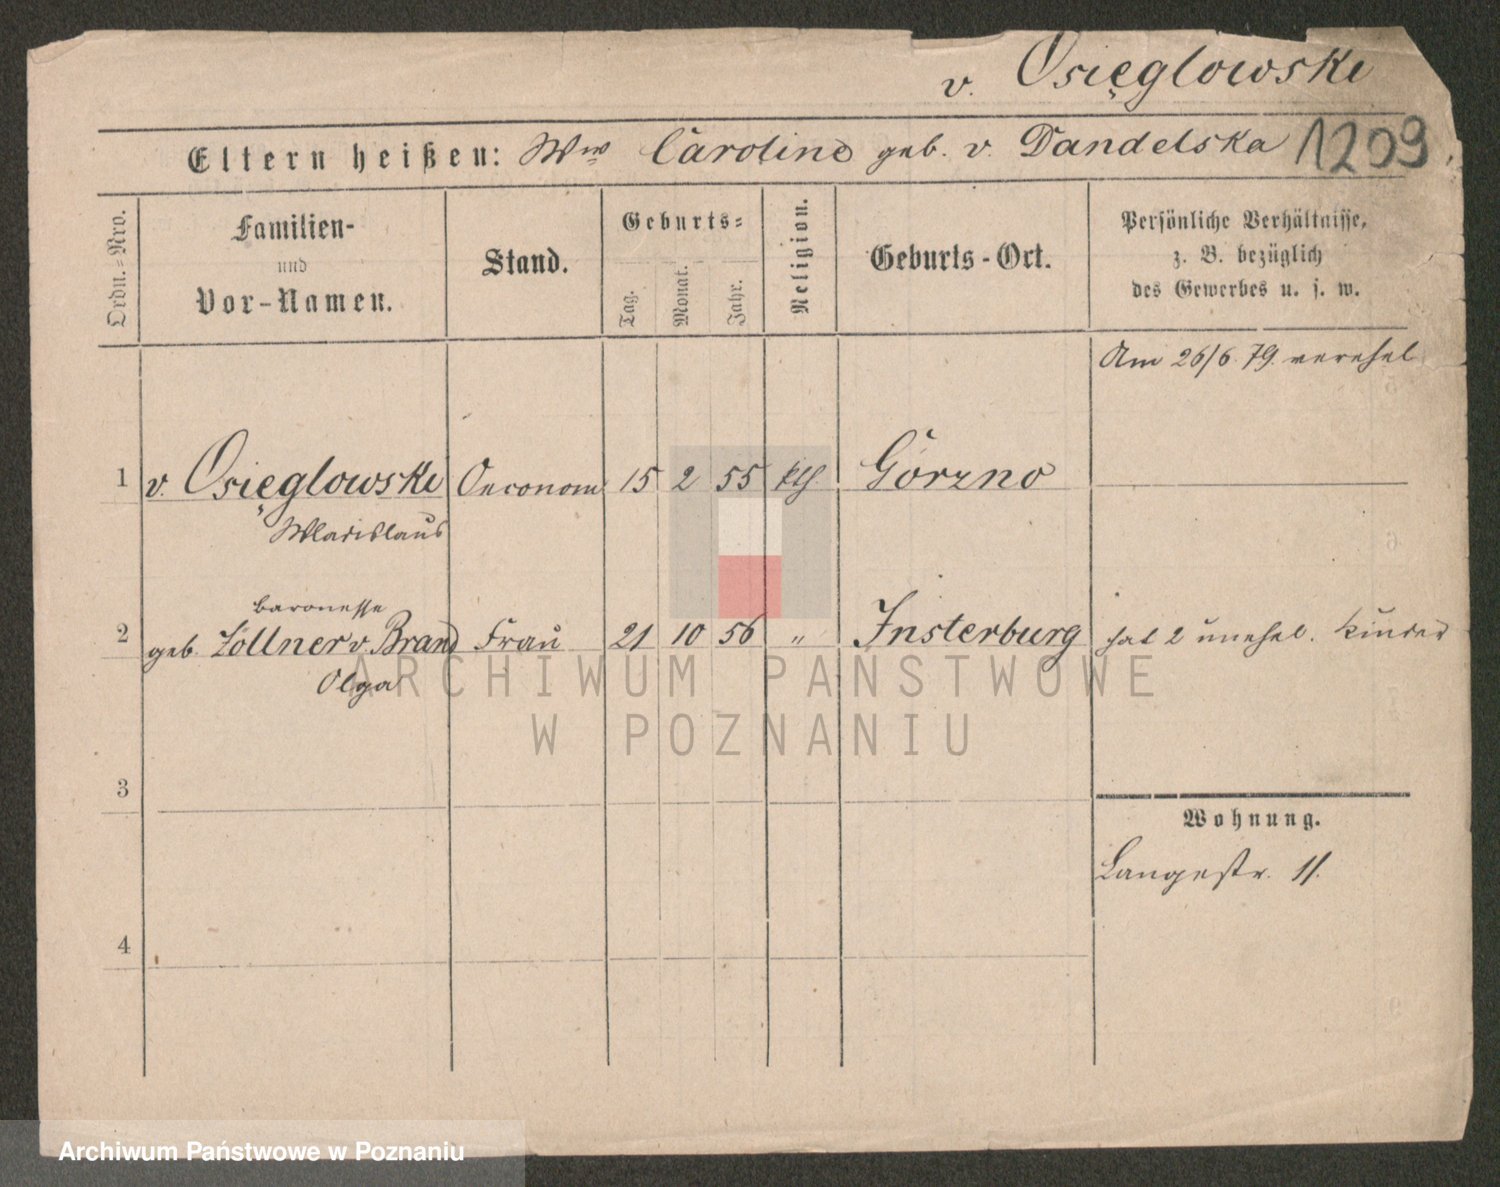 v. Osięglowski
Eltern heißen: Ww Caroline geb. v. Dandelska 1209
Ordn.-Nro.
Familien-
und
Vor-Namen.
Stand.
Geburts-
Tag.
Monat.
Jahr.
Religion.
Geburts-Ort.
Persönliche Verhältnisse,
z. B. bezüglich
des Gewerbes u. s. w.
Am 26/6. 79. verehel
1 v. Osięglowski Oeconom 15 2 55 kth Górzno
Wladislaus
baronesse
2 geb. Zöllner v. Brand Frau 21 10 56 " Insterburg hat 2 unehel. Kinder
Olga
ARCHIWUM PAŃSTWOWE
W POZNANIU
3
Wohnung.
Langestr. 11.
4
Archiwum Państwowe w Poznaniu